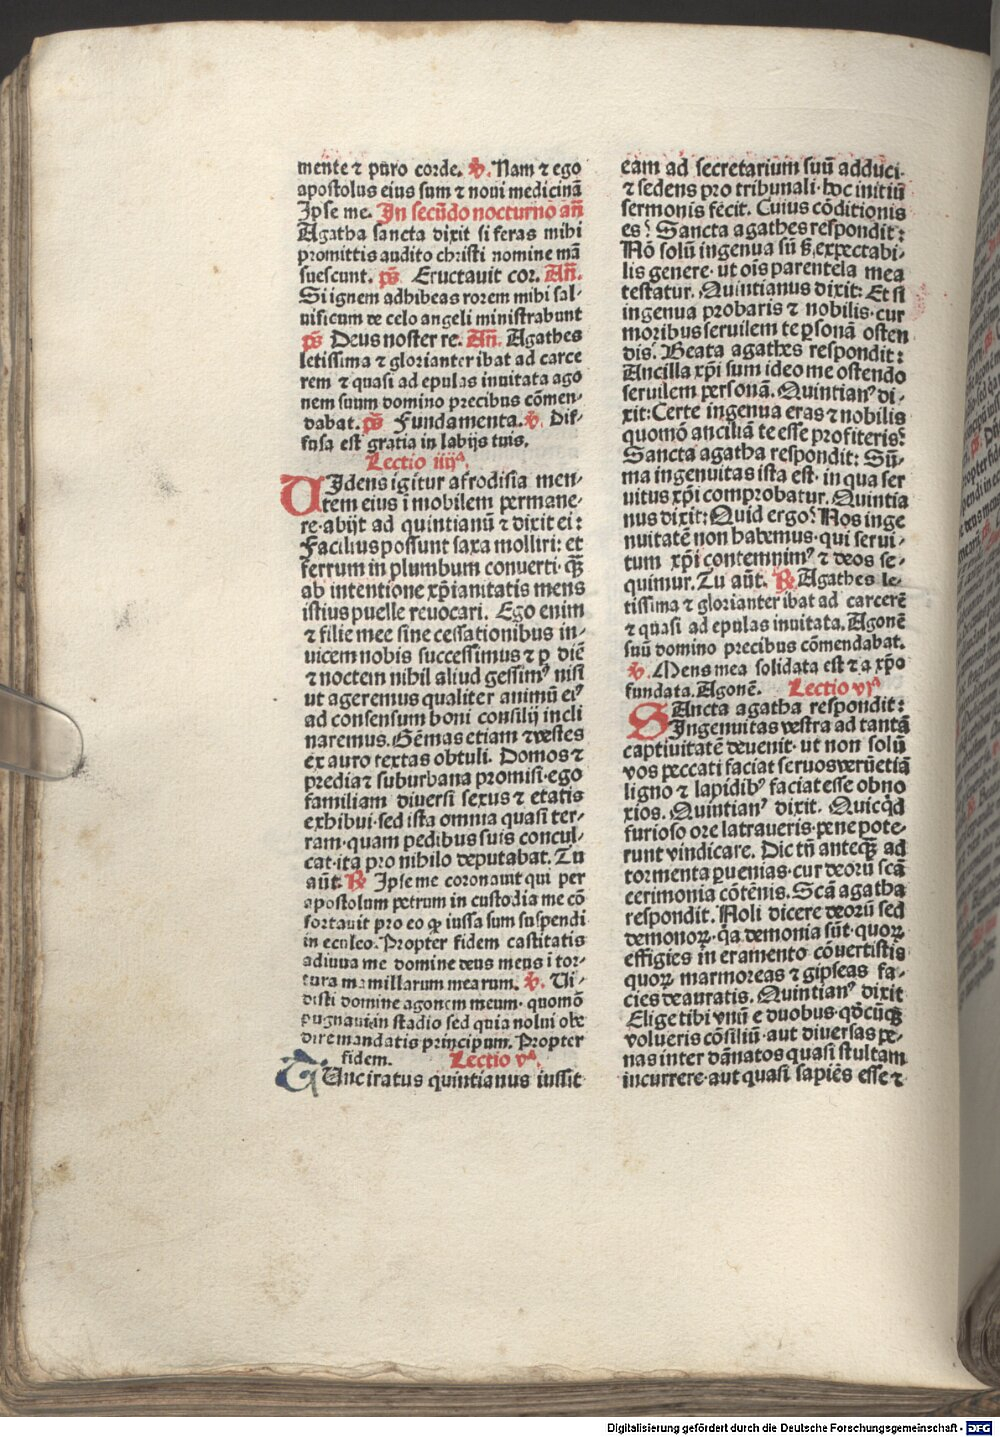 mente ⁊ puro corde. ℣. Nam ⁊ ego
apostolus eius sum ⁊ noui medicinā
Ipse me. In secūdo nocturno añ
Agatha sancta dixit si feras mihi
promittis audito christi nomine mā
suescunt. ps̄ Eructauit cor. Añ.
Si ignem adhibeas rorem mihi sal-
uificum de celo angeli ministrabunt
ps̄ Deus noster re. Añ. Agathes
letissima ⁊ glorianter ibat ad carce
rem ⁊ quasi ad epulas inuitata ago
nem suum domino precibus cōmen-
dabat. ps̄ Fundamenta. ℣. Dif-
fusa est gratia in labijs tuis.
Lectio iiijᵃ.
UIdens igitur afrodisia men-
tem eius ī mobilem permane-
re· abijt ad quintianū ⁊ dixit ei:
Facilius possunt saxa molliri: et
ferrum in plumbum conuerti· qꝫ
ab intentione xp̄ianitatis mens
istius puelle reuocari. Ego enim
⁊ filie mee sine cessationibus in-
uicem nobis successimus ⁊ ꝑ diē
⁊ noctem nihil aliud gessimꝰ nisi
ut ageremus qualiter animū eiꝰ
ad consensum boni consilij incli
naremus. Gēmas etiam ⁊ vestes
ex auro textas obtuli. Domos ⁊
predia ⁊ suburbana promisi· ego
familiam diuersi sexus ⁊ etatis
exhibui· sed ista omnia quasi ter-
ram· quam pedibus suis concul-
cat· ita pro nihilo deputabat. Tu
aūt. ℟ Ipse me coronauit qui per
apostolum petrum in custodia me cō
fortauit pro eo ꝙ iussa sum suspendi
in eculeo. Propter fidem castitatis
adiuua me domine deus meus ī tor-
tura mamillarum mearum. ℣. Ui-
disti domine agonem meum· quomō
pugnaui in stadio sed quia nolui obe
dire mandatis principum. Propter
fidem. Lectio vᵃ.
TUnc iratus quintianus iussit
eam ad secretarium suū adduci·
⁊ sedens pro tribunali· hoc initiū
sermonis fecit. Cuius cōditionis
es? Sancta agathes respondit:
Nō solū ingenua sū s̄ expectabi-
lis genere· ut oīs parentela mea
testatur. Quintianus dixit: Et si
ingenua probaris ⁊ nobilis· cur
moribus seruilem te ꝑsonā osten
dis. Beata agathes respondit:
Ancilla xp̄i sum ideo me ostendo
seruilem personā. Quintianꝰ di-
xit: Certe ingenua eras ⁊ nobilis
quomō ancillā te esse profiteris?
Sancta agatha respondit: Sū-
ma ingenuitas ista est· in qua ser
uitus xp̄i comprobatur. Quintia
nus dixit: Quid ergo? Nos inge
nuitatē non habemus· qui serui-
tum xp̄i contemnimꝰ ⁊ deos se-
quimur. Tu aūt. ℟ Agathes le-
tissima ⁊ glorianter ibat ad carcerē
⁊ quasi ad epulas inuitata. Agonē
suū domino precibus cōmendabat.
℣. Mens mea solidata est ⁊ a xp̄o
fundata. Agonē. Lectio vjᵃ
SAncta agatha respondit:
Ingenuitas vestra ad tantā
captiuitatē deuenit· ut non solū
vos peccati faciat seruos verū etiā
ligno ⁊ lapidibꝰ faciat esse obno
xios. Quintianꝰ dixit. Quicqd̄
furioso ore latraueris· pene pote-
runt vindicare. Dic tñ anteqꝫ ad
tormenta ꝑuenias· cur deorū scā
cerimonia cōtēnis. Scā agatha
respondit. Noli dicere deorū sed
demonoꝝ· qa demonia sūt· quoꝝ
effigies in eramento cōuertistis
quoꝝ marmoreas ⁊ gipseas fa-
cies deauratis. Quintianꝰ dixit
Elige tibi vnū e duobus· qd̄cūqꝫ
volueris cōsiliū· aut diuersas pe-
nas inter dānatos quasi stultam
incurrere· aut quasi sapiēs esse ⁊
Digitalisierung gefördert durch die Deutsche Forschungsgemeinschaft - DFG